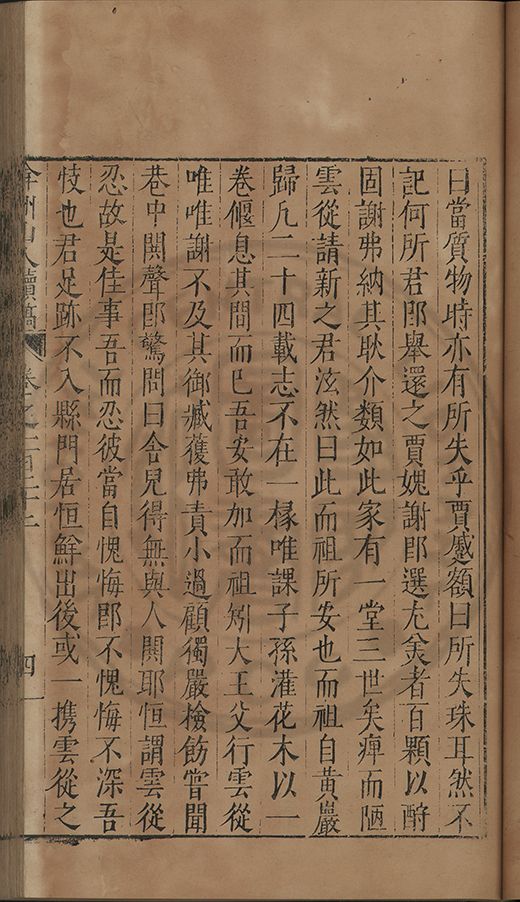 曰當質物時亦有所失乎賈蹙額曰所失珠耳然不
記何所君卽舉還之賈媿謝卽選尤金者百顆以酹
固謝弗納其耿介類如此家有一堂三世矣痺而陋
雲從請新之君泫然曰此而祖所安也而祖自黃巖
歸凢二十四載志不在一椽唯課子孫灌花木以一
卷偃息其間而巳吾安敢加而祖矧大王父行雲從
唯唯謝不及其御臧獲弗責小過顧獨嚴檢飭嘗聞
巷中鬨聲卽驚問曰舍兒得無與人鬨耶恒謂雲從
忍故是佳事吾而忍彼當自愧悔卽不愧悔不深吾
忮也君足跡不入縣門居恒鮮出後或一携雲從之
弇州山人續稿 卷之一百二十三 四